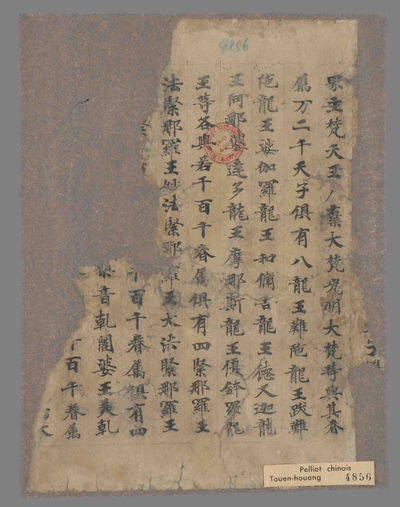 4856
界主梵天王尸棄大梵光明大梵等與其眷
屬万二千天子俱有八龍王難陁龍王跋難
陁龍王娑伽羅龍王和脩吉龍王德叉迦龍
王阿那婆達多龍王摩那斯龍王優鉢羅龍
王等各與若千百千眷屬俱有四緊那羅王
法緊那羅王妙法緊那羅王大法緊那羅王
百千眷屬俱有四
樂音乹闥婆王美乹
百千眷屬
大
Pelliot chinois
Touen-houang 4856